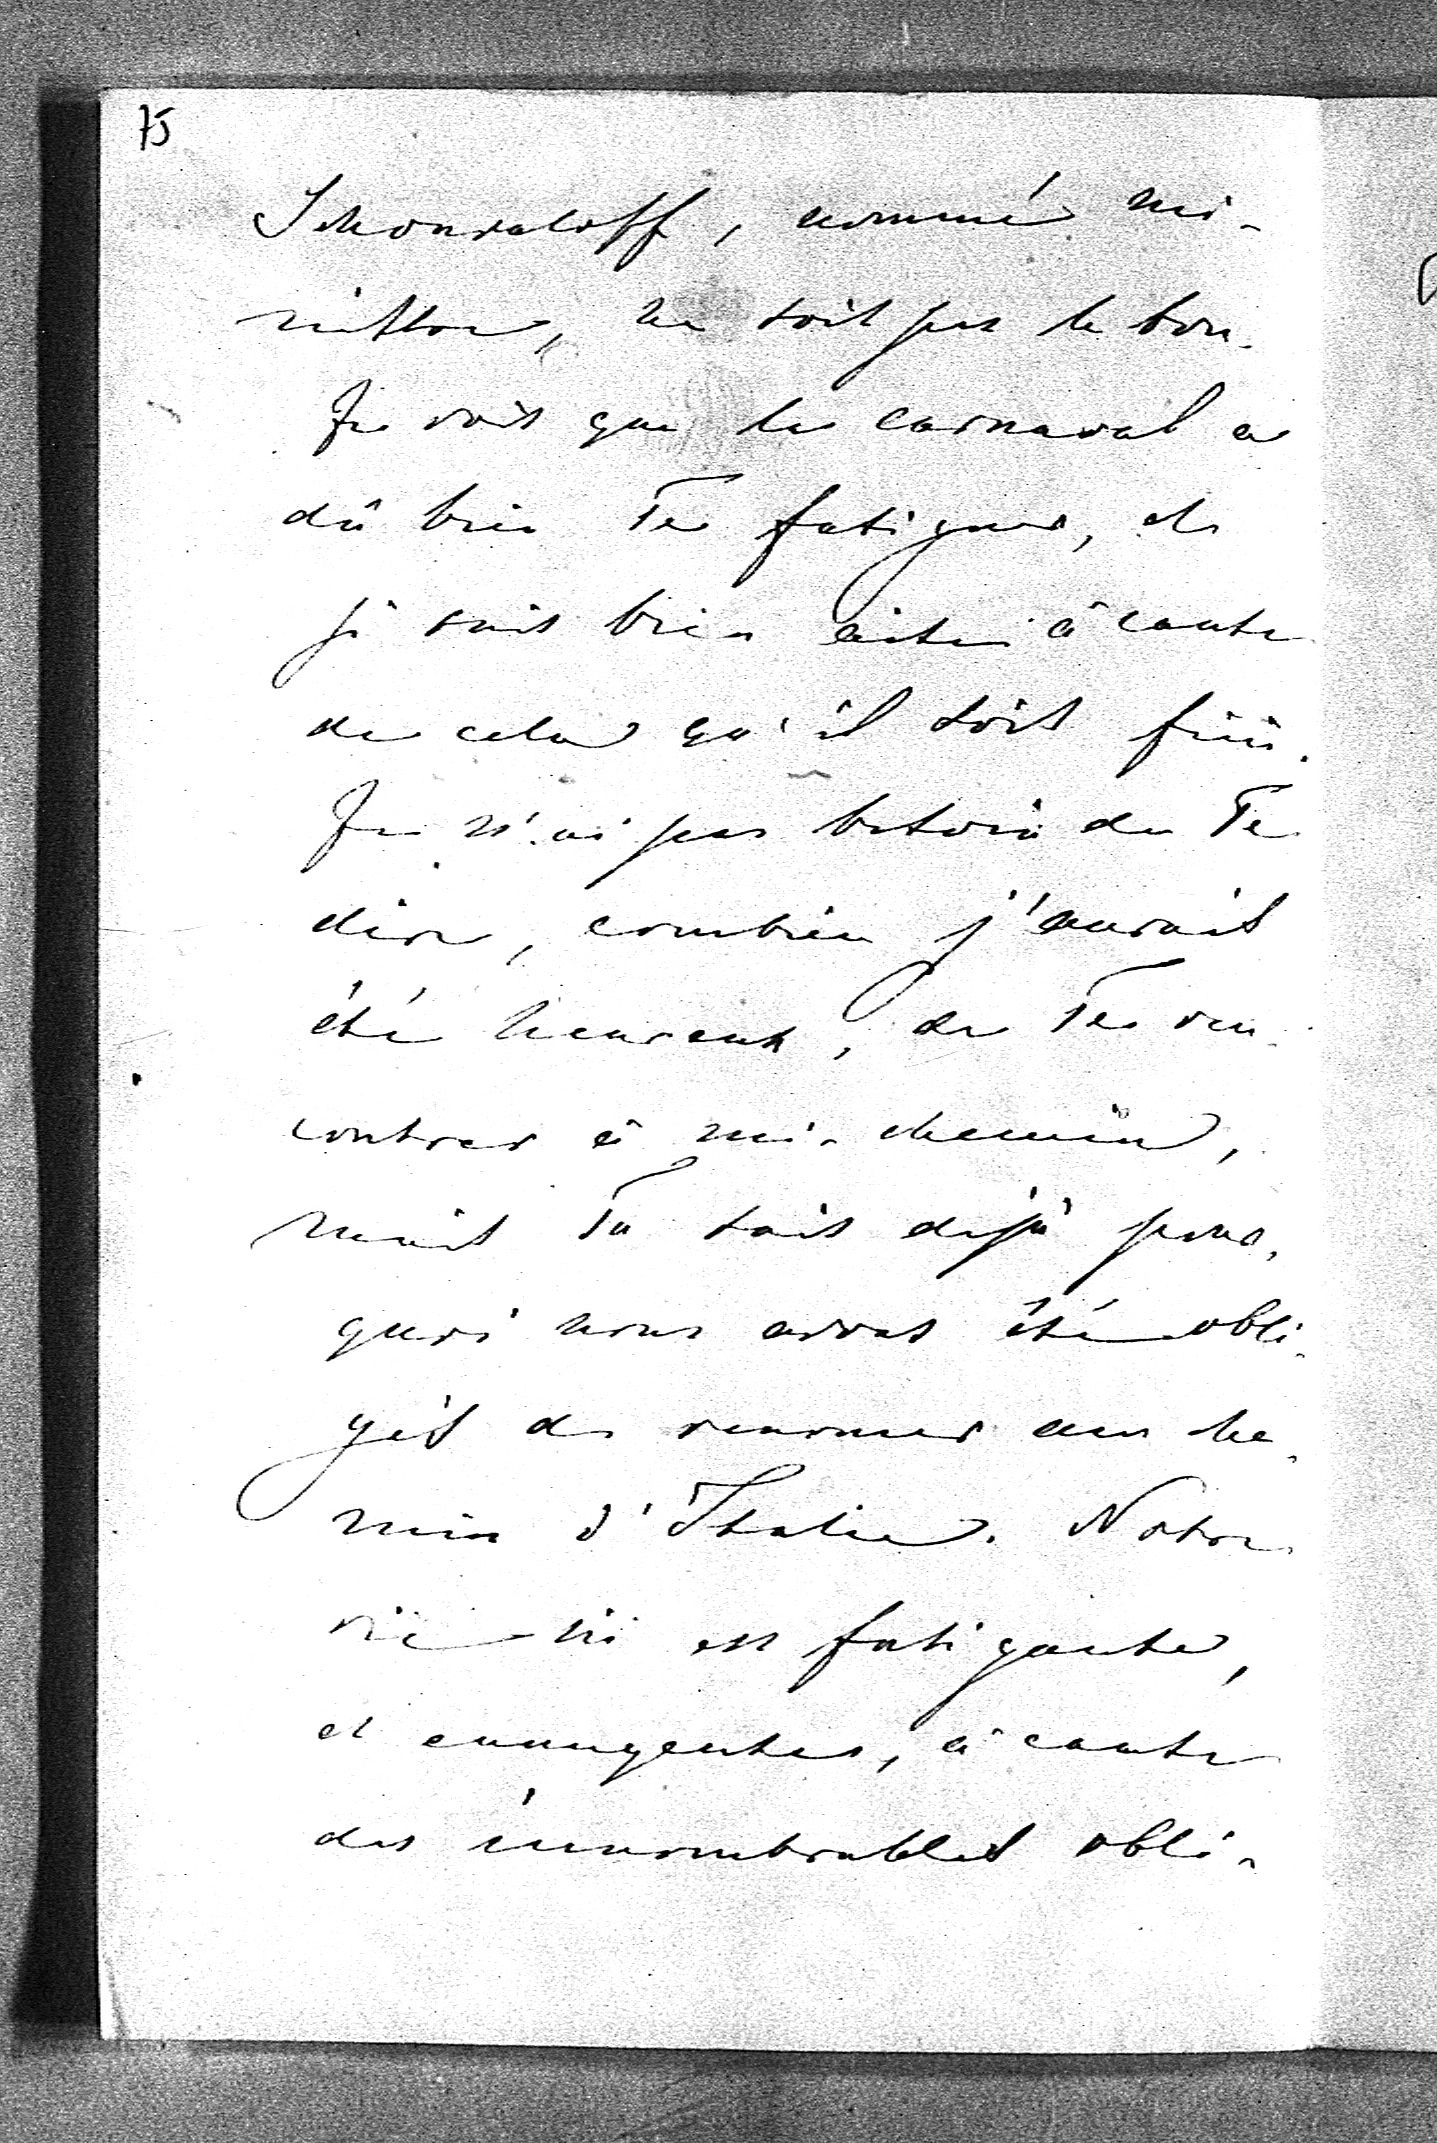 75
Schouvaloff, nommé mi-
nistre, ne soit pas le bon.
Je vois que le carnaval a
dû bien Te fatiguer, et
je suis bien aise à cause
de cela qu'il soit fini.
Je n'ai pas besoin de Te
dire, combien j'aurais
été heureux, de Te ren-
contrer à mi-chemin,
mais Tu sais déjà pour-
quoi nous avons été obli-
gés de renoncer au che-
min d'Italie. Notre
vie ici est fatigante,
et à cause
des innombrables obli-